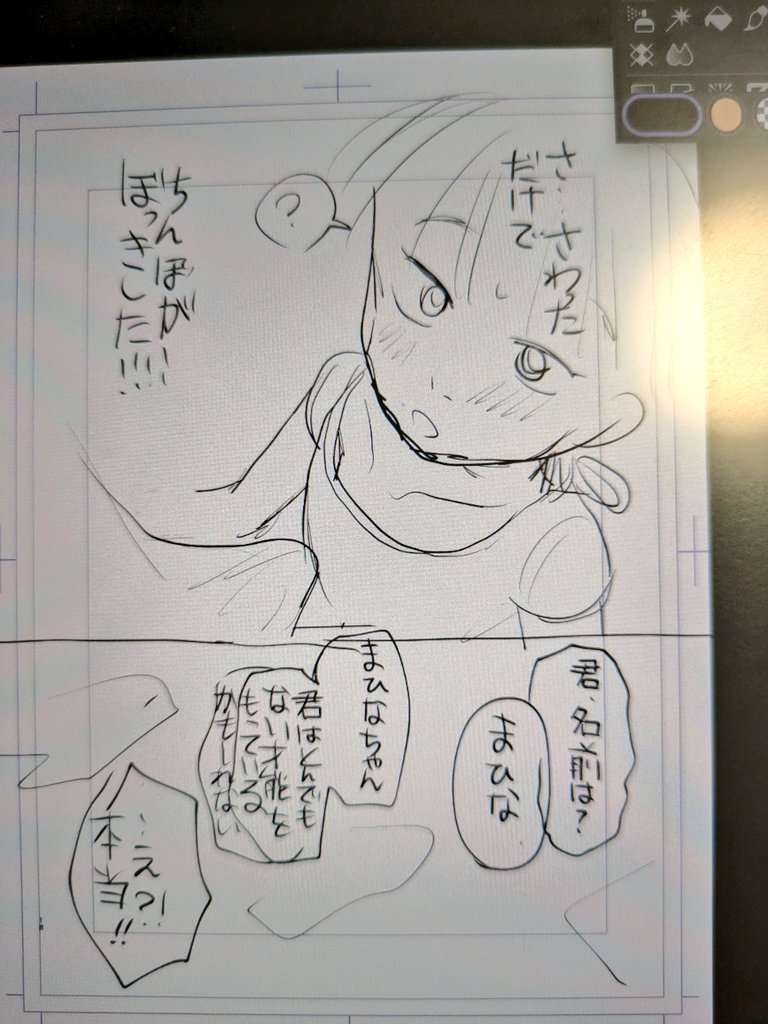 さ…さわった
だけで
ちんぽが
ぼっきした!!!
?
君、名前は?
まひな
まひなちゃん
君はとんでも
ない才能を
もっている
かもしれない
…え?!
本当!!